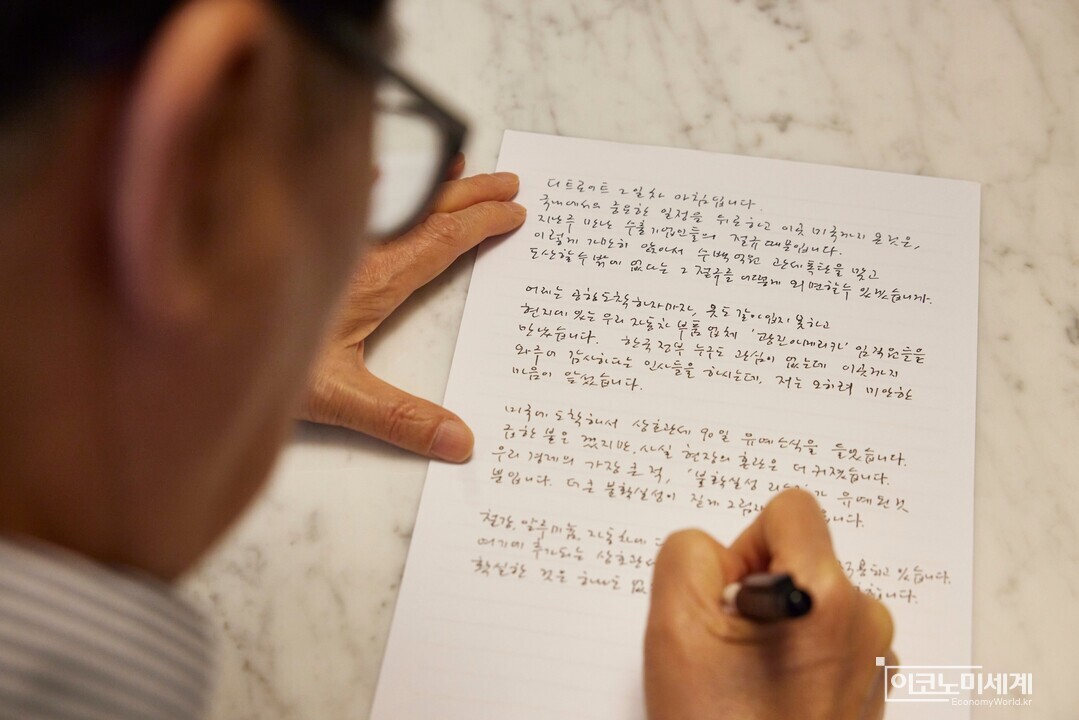 디트로이트 2일차 아침입니다.
국내에서의 중요한 일정을 뒤로하고 이곳 미국까지 온 것은,
지난주 만난 수출기업인들의 절규 때문입니다.
이렇게 가만히 앉아서 수백억원 관세폭탄을 맞고
도산할 수 밖에 없다는 그 절규를 어떻게 외면할 수 있겠습니까.
어제는 공항 도착하자마자, 옷도 갈아입지 못하고
현지에 있는 우리 자동차 부품업체 '광진아메리카' 임직원들을
만났습니다. 한국 정부 누구도 관심이 없는데 이곳까지
와주어 감사하다는 인사들을 하시는데, 저는 오히려 미안한
마음이 앞섰습니다.
미국에 도착해서 상호관세 90일 유예 소식을 들었습니다.
급한 불은 껐지만, 사실 현장의 혼란은 더 커졌습니다.
우리 경제의 가장 큰 적, '불확실성 가 유예된 것
뿐입니다. 더 큰 불확실성이 짙게 니다.
철강, 알루미늄, 자동차에 적용하고 있습니다.
여기에 추가되는 상호관세 니다.
확실한 것은 하나도 없
이코노미세계
EconomyWorld.kr